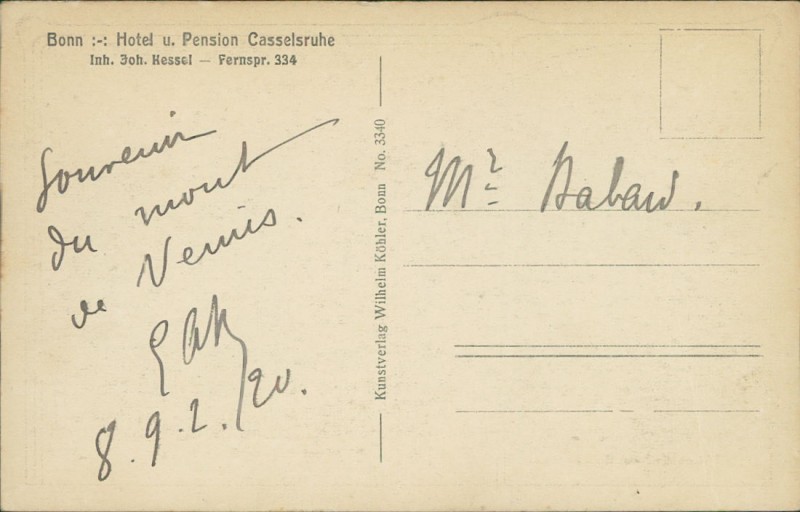 Bonn :-: Hotel u. Pension Casselsruhe
Inh. Joh. Kessel — Fernspr. 334
Souvenir
du mont
de Venus.
8.9.2./20.
Kunstverlag Wilhelm Köhler, Bonn No. 3340
Mr